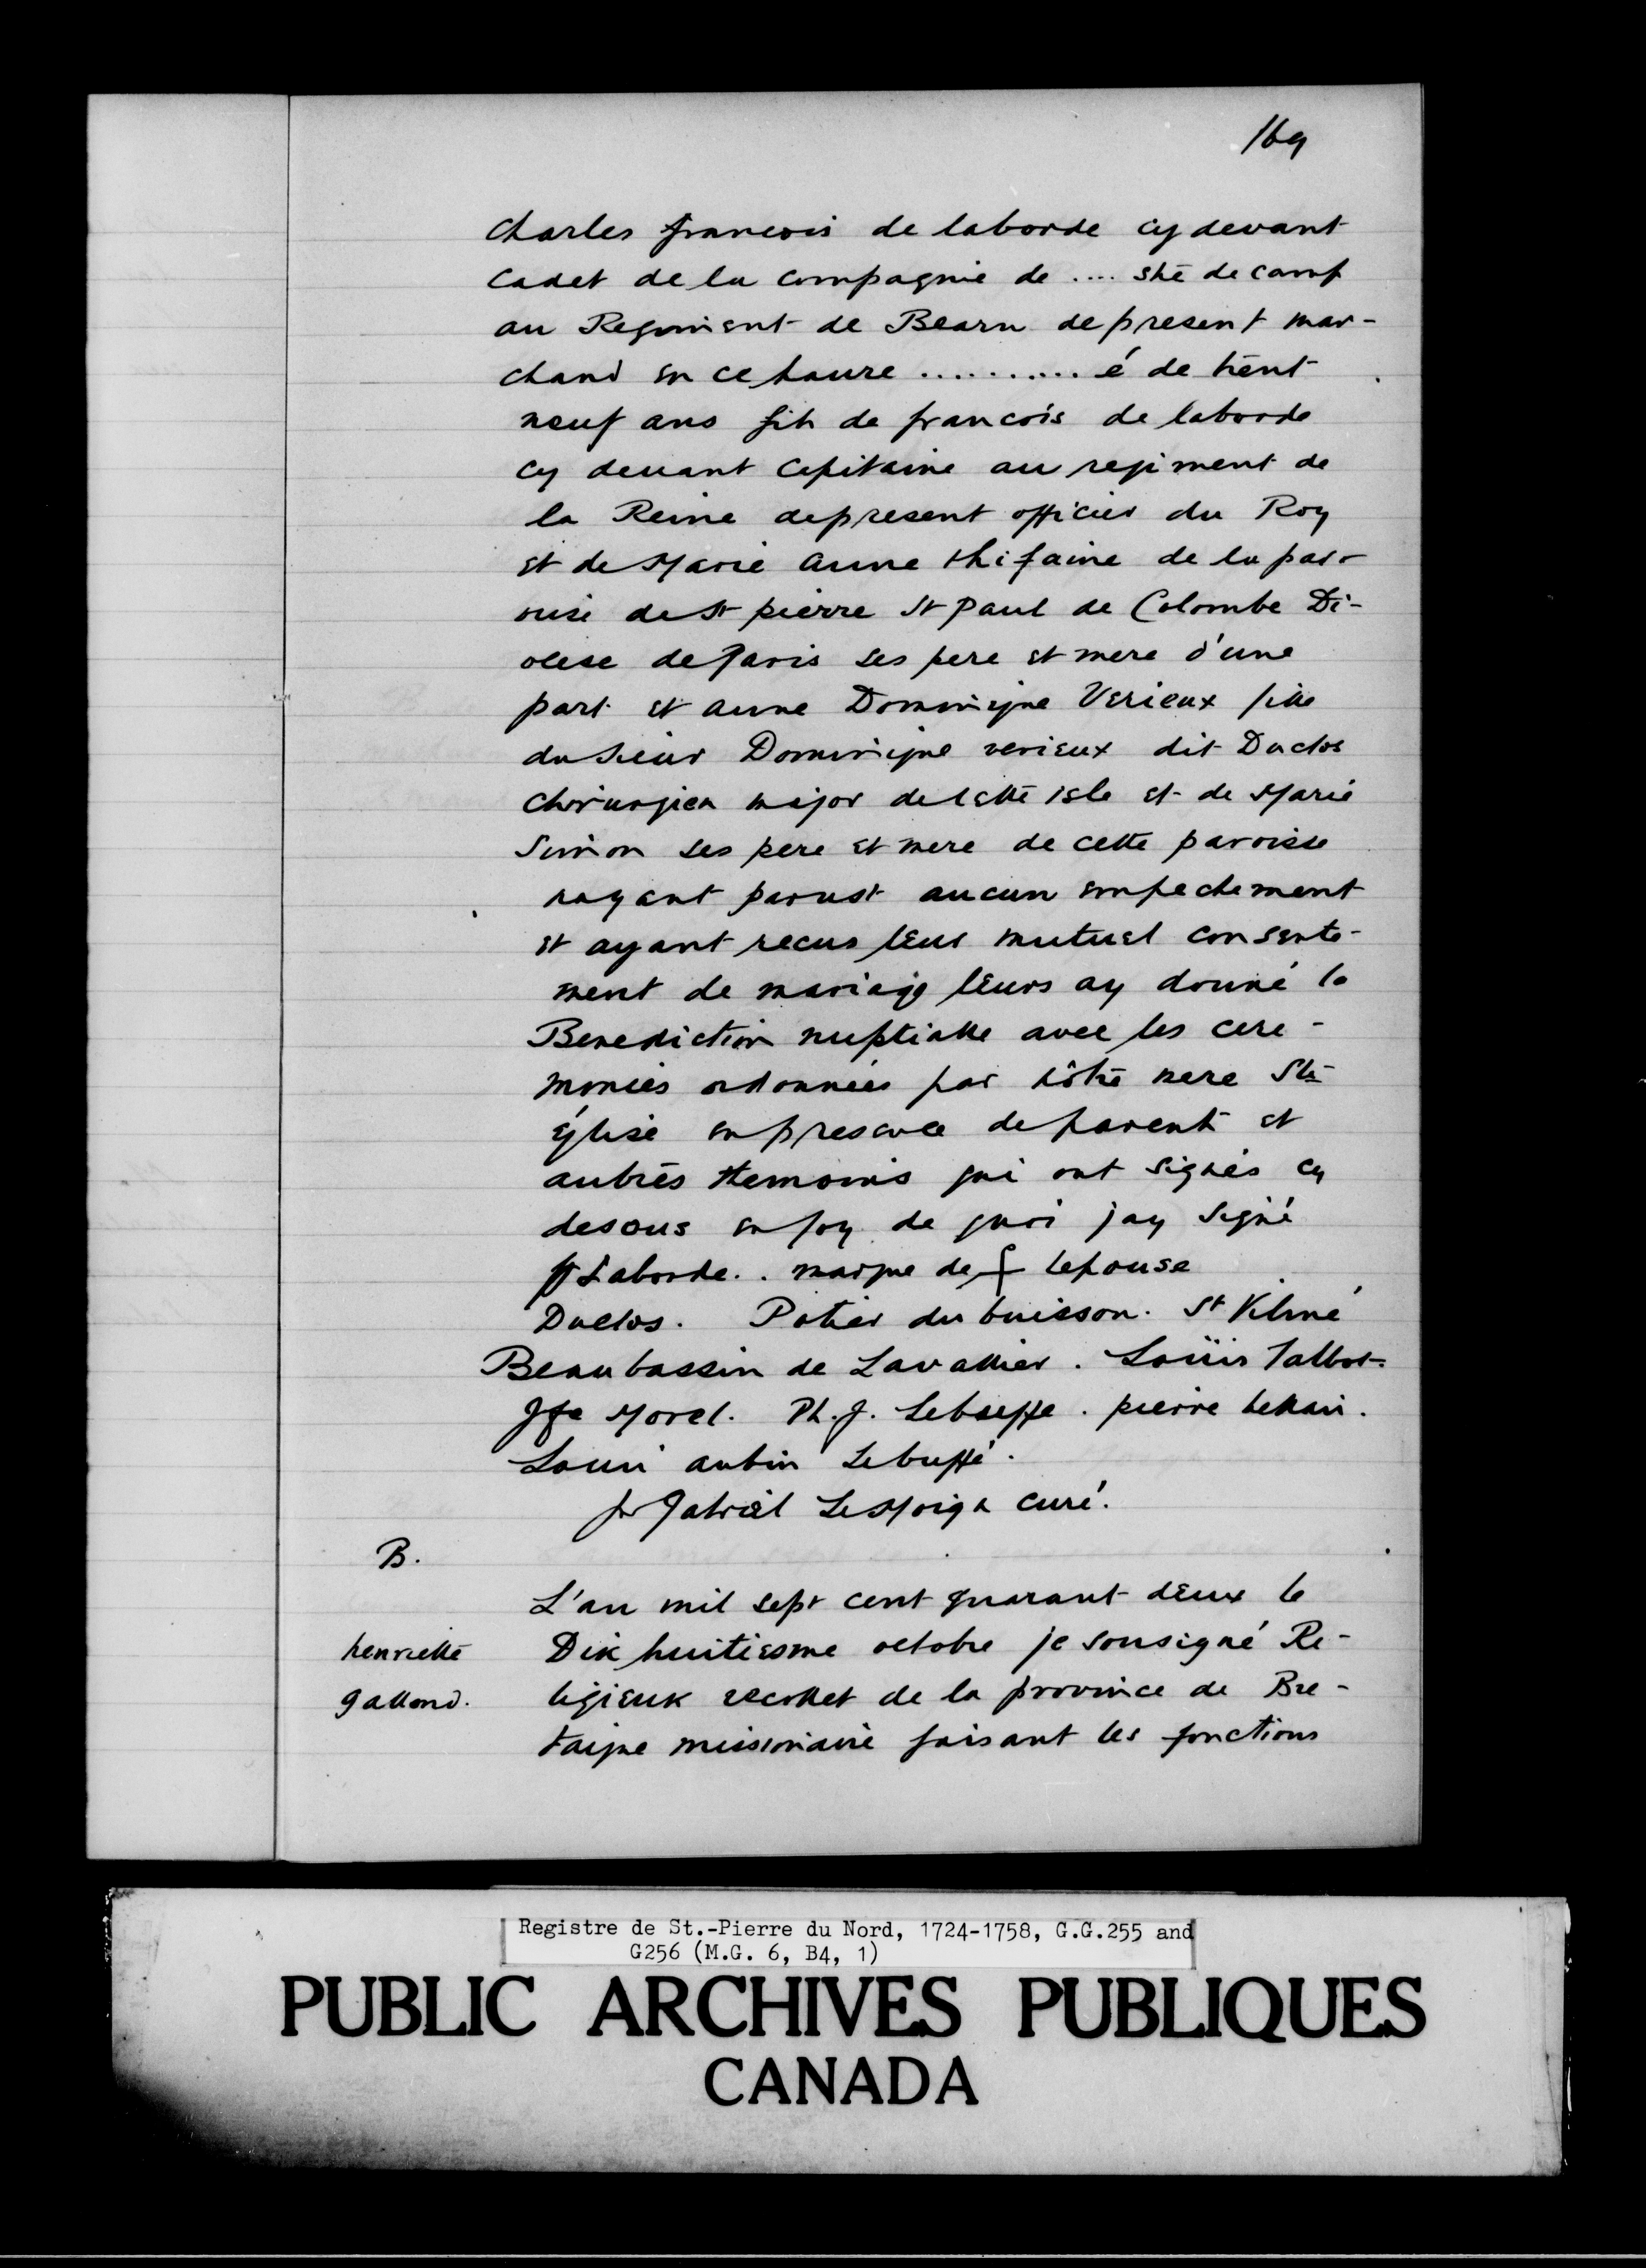 169
Charles francois de laborde cy devant
Cadet de la Compagnie de .... stre de camp
au Regiment de Bearn de present mar-
chand en ce havre .......... é de trent
neuf ans fils de francois de laborde
cy devant Capitaine au regiment de
la Reine depresent officier du Roy
et de Marie anne thifaine de la par-
oise de St pierre St Paul de Colombe Di-
ocese de Paris ses pere et mere d'une
part et anne Dominique Verieux fille
du sieur Dominique verieux dit Duclos
Chirurgien major de cette isle et de Marie
Simon ses pere et mere de cette paroisse
nayant parust aucun empechement
et ayant recus leur mutuel consente-
ment de mariage leurs ay donné la
Benediction nuptialle avec les cere-
monies ordonnées par nôtre mere Ste
église en presence de parents et
autres ttemoins qui ont signés cy
desous en foy de quoi jay signé
Laborde.. marque de lepouse
Duclos. Potier du buisson. St Vilmé
Beaubassin de Lavallier. Loüis Talbot.
Morel. Ph. J. Lebueffe. pierre
Louis aubin Lebuffé.
fr Gabriel LeMoign curé.
B.
L'an mil sept cent quarant deux le
henriette Dix huitiesme octobre je sousigné Re-
gallond. ligieux recollet de la province de Bre-
taigne missionaire faisant les fonctions
Registre de St.-Pierre du Nord, 1724-1758, G.G.255 and
G256 (M.G. 6, B4, 1)
PUBLIC ARCHIVES PUBLIQUES
CANADA